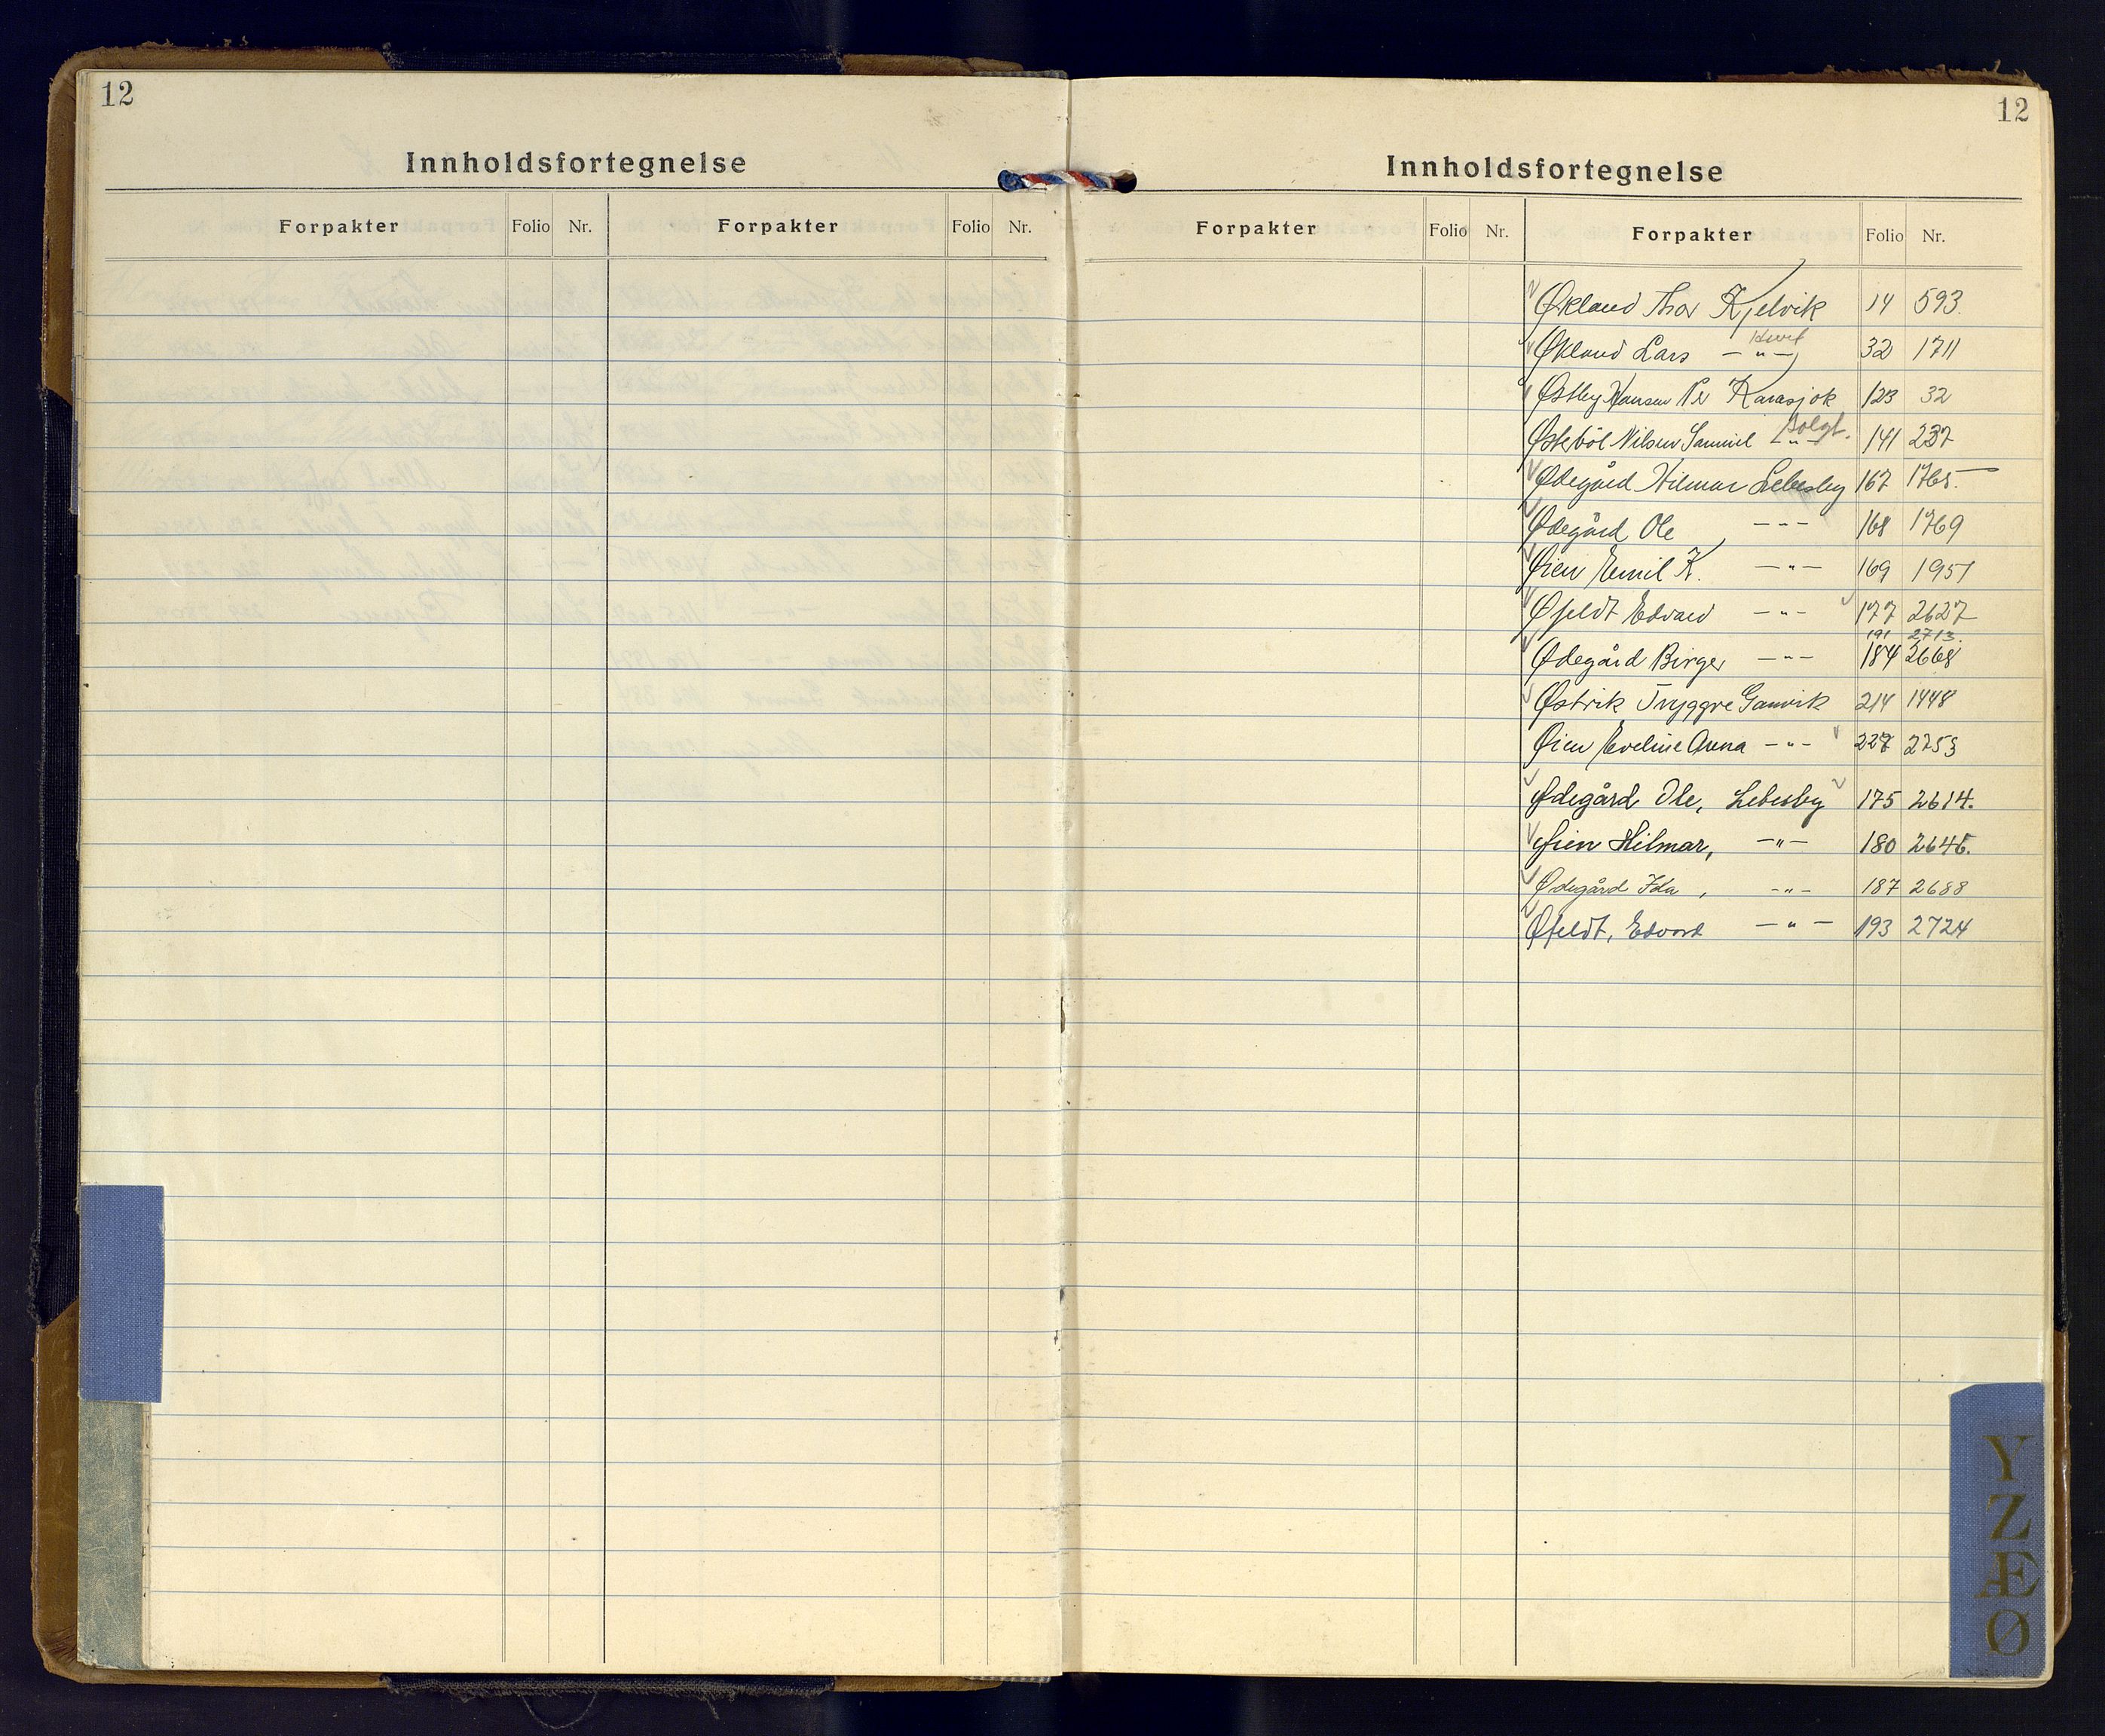 12
Innholdsfortegnelse
Forpakter Folio Nr. Forpakter Folio Nr.
12
Innholdsfortegnelse
Forpakter Folio Nr. Forpakter Folio Nr.
Økland Thor Kjelvik 14 593.
Økland Lars —"— 32 1711
Østby Hansen Per Karasjok 123 32
Østeböl Nilsen Samuel —"— Solgt. 141 237
Ødegård Hilmar Lebesby 167 1765.
Ødegård Ole —"— 168 1769
Øien Emil K. —"— 169 1951
Øfeldt Edvard —"— 177 2627
191 2713.
Ødegård Birger —"— 184 2668
Østvik Tryggve Gamvik 214 1448
Øien Eveline Anna —"— 227 2753
Ødegård Ole, Lebesby 175 2614.
Øien Hilmar, —"— 180 2645.
Ødegård Ida, —"— 187 2688
Øfeldt, Edvard —"— 193 2724
Y
Z
Æ
Ø